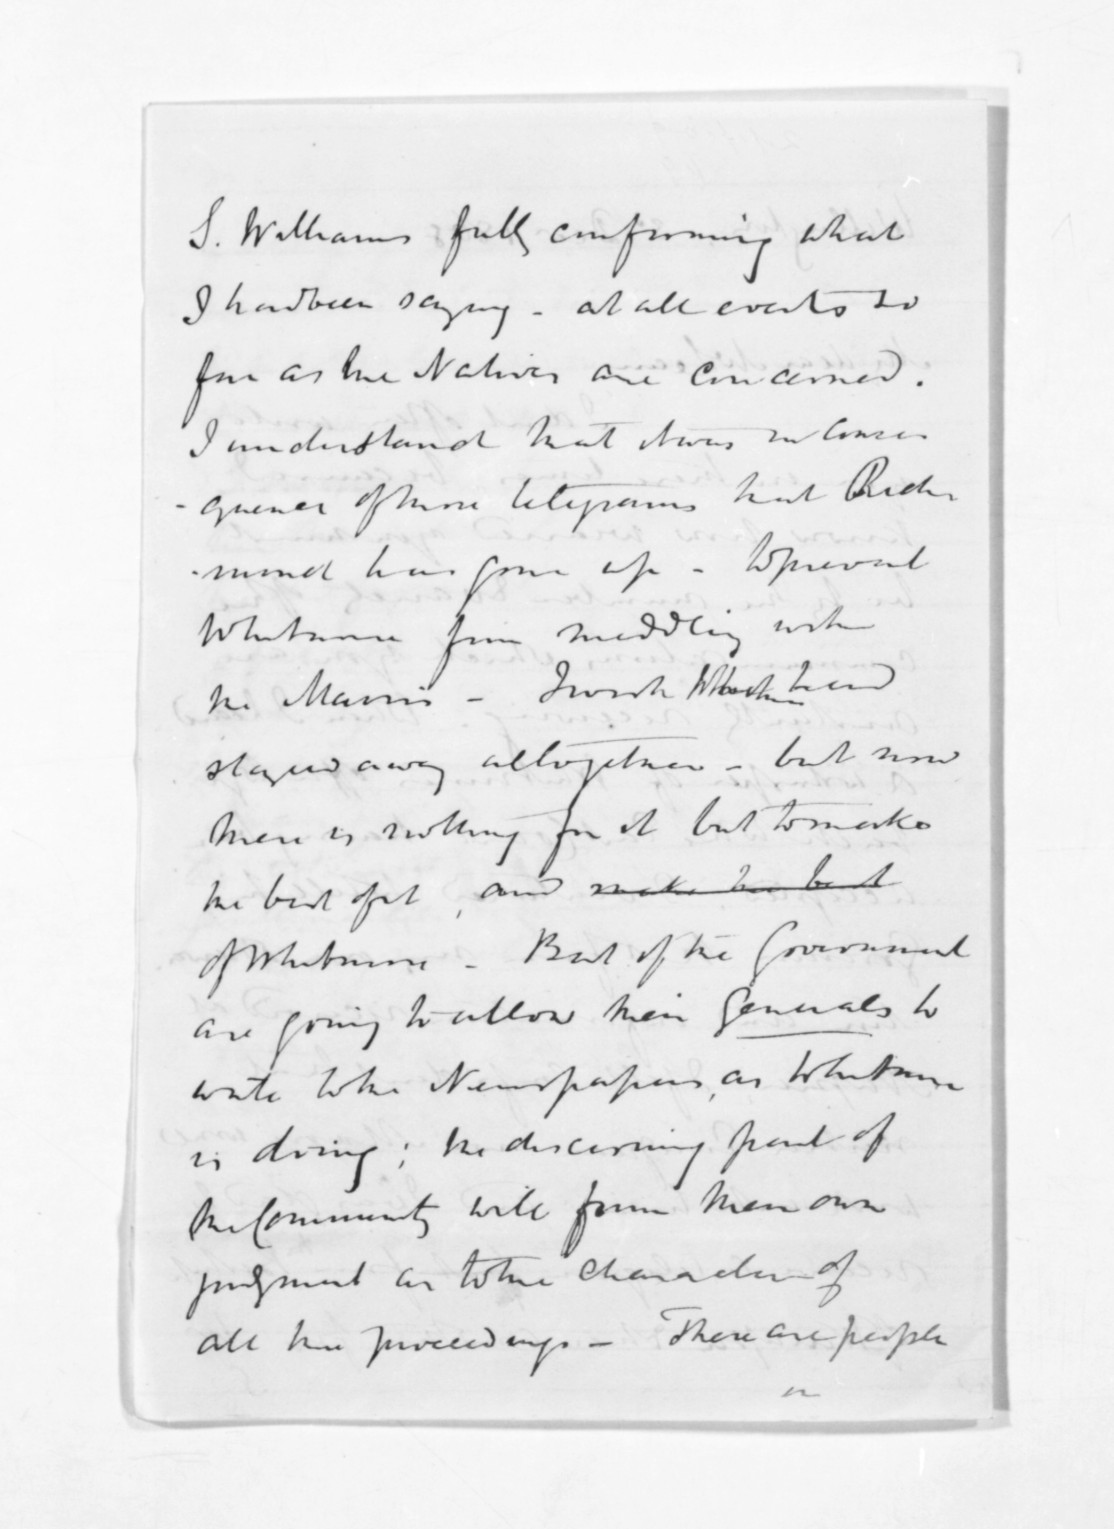 S. Williams fully confirming what
I had been saying - at all events so
far as the Natives are concerned.
I understand that it was in conse
-quence of those telegrams that Rich
-mond has gone up - to prevent
Whitmore from meddling with
the Maoris - I wish Whitmore had
stayed away altogether - but now
there is nothing for it but to make
the best of it, and make the best
of Whitmore - But if the Government
are going to allow their Generals to
write to the Newspapers, as Whitmore
is doing; the discerning part of
the Community will form their own
judgment as to the character of
all the proceedings - There are people
in